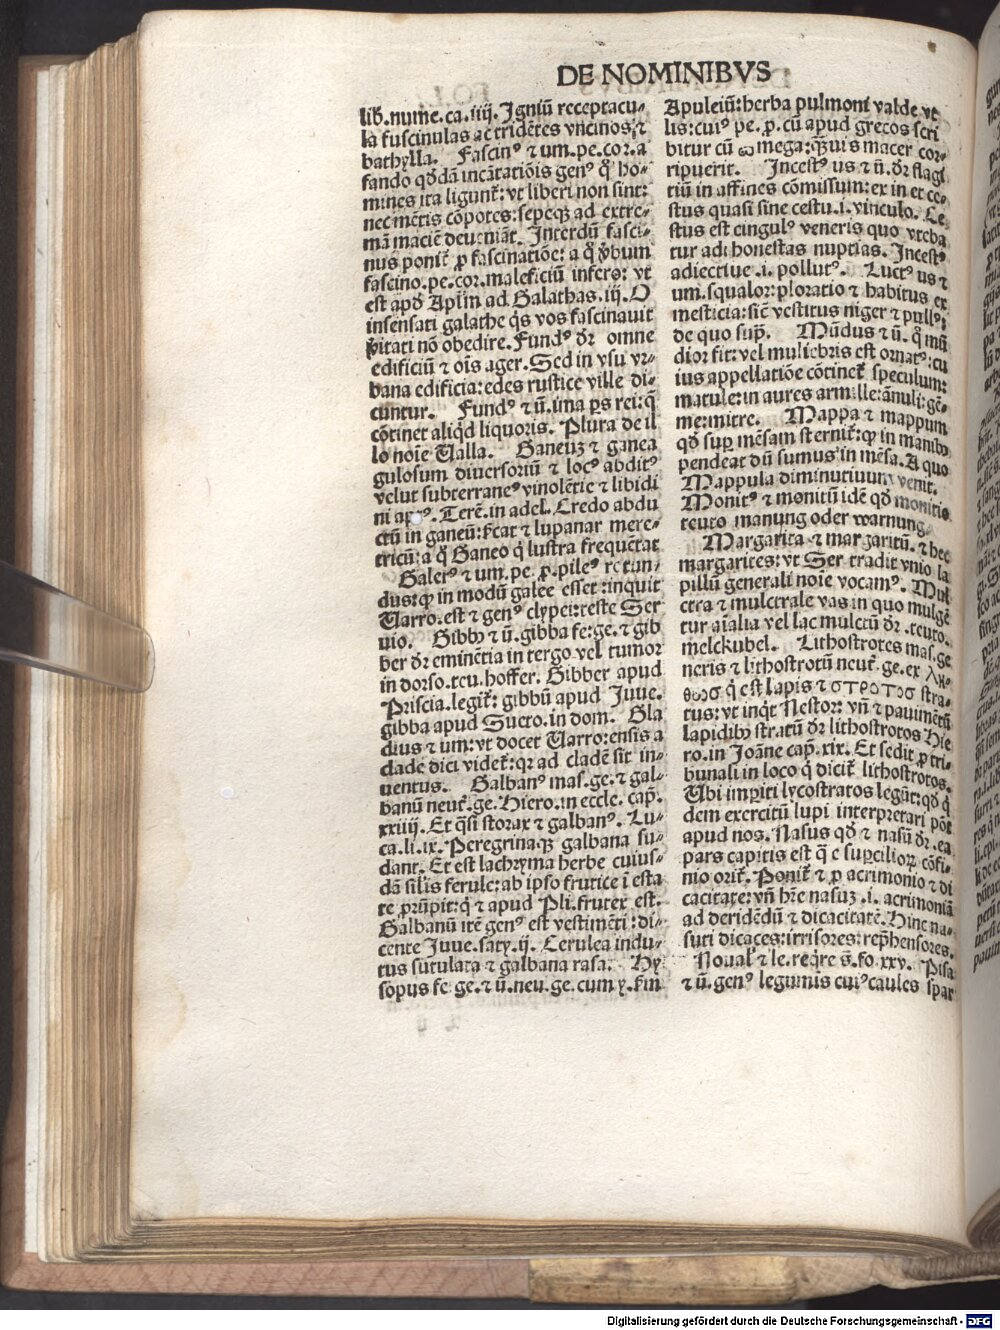 DE NOMINIBVS
lib̃. nume. ca. iiij. Igniū receptacu-
la fuscinulas ac tridētes vncinos, ⁊
bathylla. Fascinꝰ ⁊ um. pe. cor. a
fando qđdā incātatiōis genꝰ q̊ ho-
mines ita ligunt̃: vt liberi non sint:
nec mētis cōpotes: sepeqꝫ ad extre-
mā maciē deueniāt. Interdū fasci-
nus ponit̃ ꝓ fascinatiōe: a q̊ v̓bum
fascino. pe. cor. maleficiū infero: vt
est apđ Aplm̄ ad Galathas. iij. O
insensati galathe q̇s vos fascinauit
v̓itati nō obedire. Fundꝰ dr̃ omne
edificiū ⁊ oīs ager. Sed in vsu vr-
bana edificia: edes rustice ville di-
cuntur. Fundꝰ ⁊ ū. īma ꝑs rei: q̄
cōtinet aliq̇d liquoris. Plura de il
lo noīe Valla. Ganeuꝫ ⁊ ganea
gulosum diuersoriū ⁊ locꝰ abditꝰ
velut subterraneꝰ vinolētie ⁊ libidi
ni Terē. in adel. Credo abdu
ctū in ganeū: fcat ⁊ lupanar mere-
tricū: a q̊ Ganeo q̇ lustra frequētat
Galerꝰ ⁊ um. pe. ꝓ. pileꝰ rotun-
dus: ꝙ in modū galee esset: inquit
Varro. est ⁊ genꝰ clypei: teste Ser
uio. Gibbꝰ ⁊ ū. gibba fe. ge. ⁊ gib
ber dr̃ eminētia in tergo vel tumor
in dorso. teu. hoffer. Gibber apud
Priscia. legit̃: gibbū apud Juue.
gibba apud Sueto. in dom. Gla
dius ⁊ um: vt docet Varro: ensis a
clade dici videt̃: qr ad cladē sit in-
uentus. Galbanꝰ mas. ge. ⁊ gal-
banū neut̃. ge. Hiero. in eccle. cap̃.
xxiiij. Et q̄si storax ⁊ galbanꝰ. Lu-
ca. li. ix. Peregrinaqꝫ galbana su-
dant. Et est lachryma herbe cuius-
dā sil̓is ferule: ab ipso frutice ī esta
te ꝓrūpit: q̇ ⁊ apud Pli. frutex est.
Galbanū itē genꝰ est vestimēti: di-
cente Juue. saty. ij. Cerulea indu-
tus sutulata ⁊ galbana rasa. Hy
sopus fe. ge. ⁊ ū. neu. ge. cum y. fm̄
Apuleiū: herba pulmoni valde vt
lis: cuiꝰ pe. ꝓ. cū apud grecos scri
bitur cū ω mega: q̄ꝫuis macer cor-
ripuerit. Incestꝰ us ⁊ ū. dr̃ flagi
tiū in affines cōmissum: ex in et ce-
stus quasi sine cestu .i. vinculo. Ce
stus est cingulꝰ veneris quo vteba
tur ad honestas nuptias. Incestꝰ
adiectiue .i. pollutꝰ. Luctꝰ us ⁊
um. squalor: ploratio ⁊ habitus ex
mesticia: sic̄ vestitus niger ⁊ pullꝰ:
de quo sup̃. Mūdus ⁊ ū. q̊ mū
dior fit: vel muliebris est ornatꝰ: cu
ius appellatiōe cōtinet̃ speculum:
matule: in aures armille: ānuli: gē-
me: mitre. Mappa ⁊ mappum
qđ suꝑ mēsam sternit̃: ꝙ in manibꝰ
pendeat dū sumus in mēsa. A quo
Mappula diminutiuum venit.
Monitꝰ ⁊ monitū idē qđ monitio
teuto manung oder warnung.
Margarita ⁊ margaritū. ⁊ hec
margarites: vt Ser. tradit vnio la
pillū generali noīe vocamꝰ. Mul
ctra ⁊ mulctrale vas in quo mulgē
tur aīalia vel lac mulctū dr̃ .teuto.
melckubel. Lithostrotes mas. ge
neris ⁊ lithostrotū neut̃. ge. ex λι-
θοσ q̇ est lapis ⁊ στροτοσ stra-
tus: vt inq̇t Nestor: vn̄ ⁊ pauimētū
lapidibꝰ stratū dr̃ lithostrotos Hie
ro. in Joāne cap̃. xix. Et sedit ꝓ tri-
bunali in loco q̇ dicit̃ lithostrotos.
Vbi imꝑiti lycostratos legūt: qđ q̇
dem exercitū lupi interpretari pōt
apud nos. Nasus qđ ⁊ nasū dr̃. ea
pars capitis est q̄ e suꝑcilioꝝ cōfi-
nio orit̃. Ponit̃ ⁊ ꝓ acrimonio ⁊ di
cacitate: vn̄ hr̄e nasuꝫ .i. acrimoniā
ad deridēdū ⁊ dicacitatē. Hinc na-
suti dicaces: irrisores: rep̄hensores.
Noualꝰ ⁊ le. req̇re s̄. fo. xxv. Pisa
⁊ ū. genꝰ legumis cuiꝰ caules spar
Digitalisierung gefördert durch die Deutsche Forschungsgemeinschaft - DFG